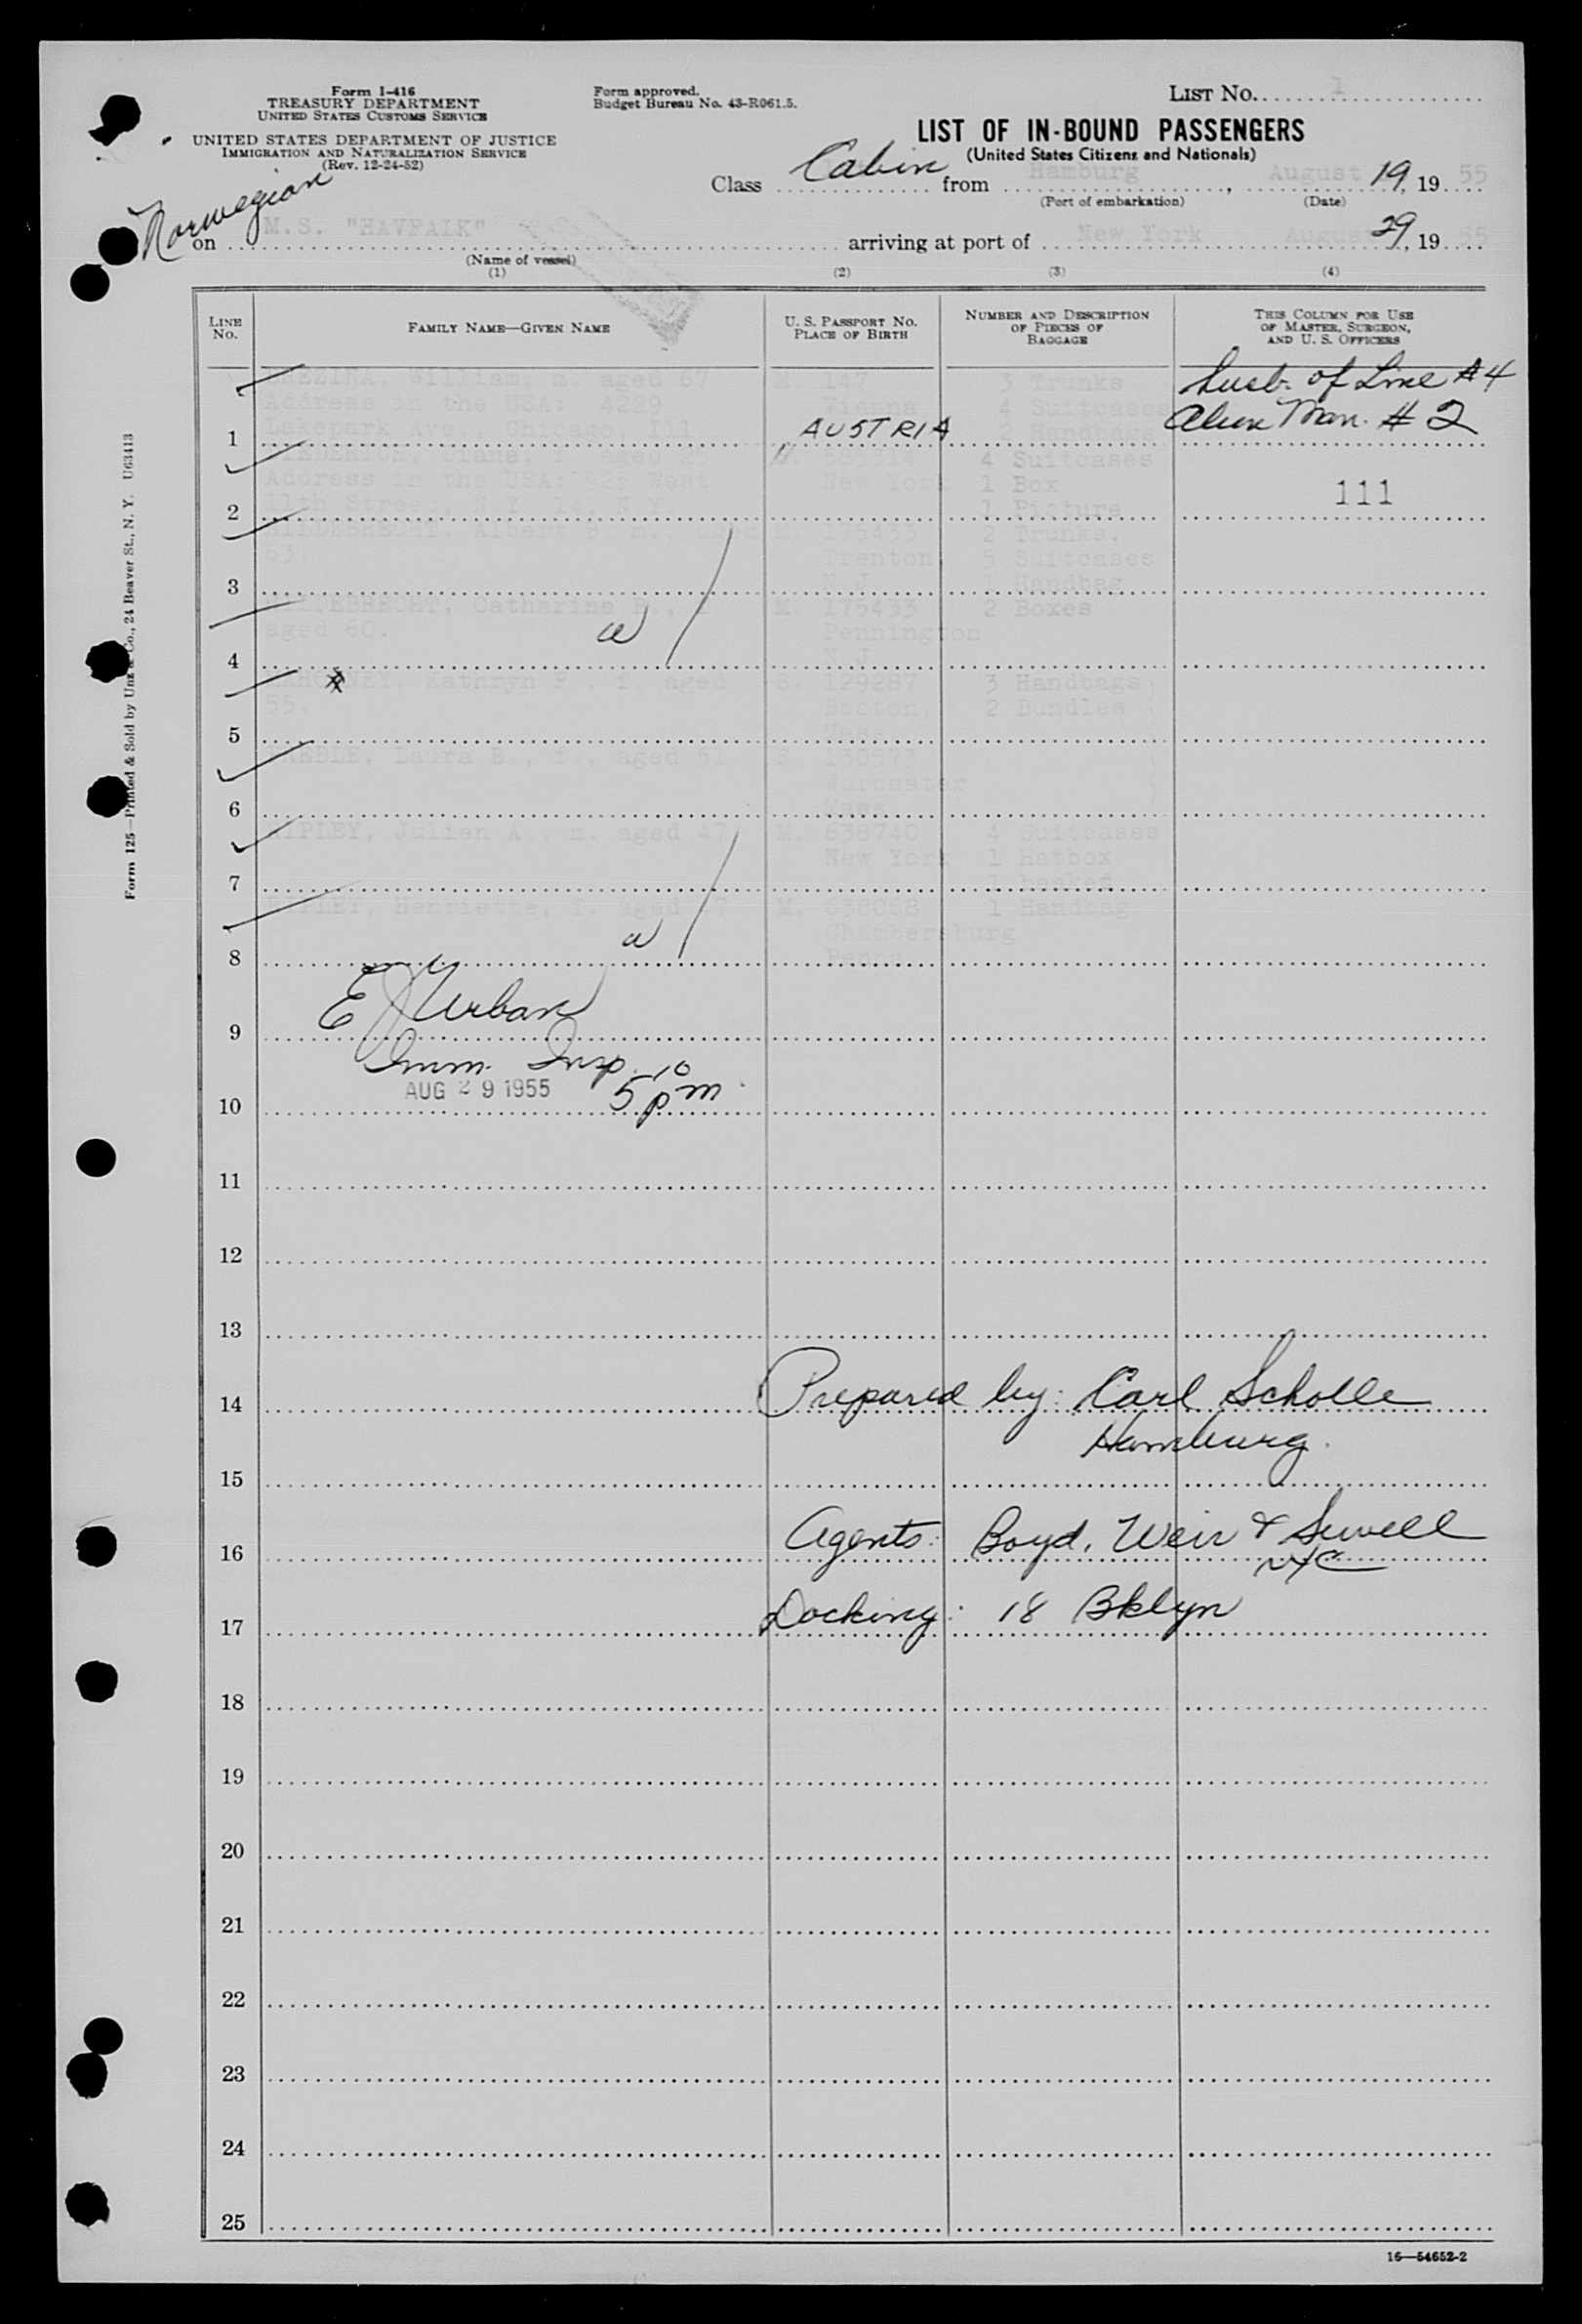 Form I-416
TREASURY DEPARTMENT
UNITED STATES CUSTOMS SERVICE
UNITED STATES DEPARTMENT OF JUSTICE
IMMIGRATION AND NATURALIZATION SERVICE
(Rev. 12-24-52)
Form approved.
Budget Bureau No. 43-R061.5.
LIST No. 1
LIST OF IN-BOUND PASSENGERS
(United States Citizens and Nationals)
Class Cabin from Hamburg, August 19, 1955
(Port of embarkation) (Date)
Norwegian
on M.S. "HAVFALK" arriving at port of New York August 29, 1955
(Name of vessel)
(1) (2) (3) (4)
LINE No. FAMILY NAME—GIVEN NAME U. S. PASSPORT NO. PLACE OF BIRTH NUMBER AND DESCRIPTION OF PIECES OF BAGGAGE THIS COLUMN FOR USE OF MASTER, SURGEON, AND U. S. OFFICERS
William, m. aged 67 147 3 Trunks husb. of Line #4
Address in the USA: 4229 Vienna 4 Suitcases Alien Man. #2
1 Lakepark Ave., Chicago, Ill. AUSTRIA 2 Handbags
4 Suitcases
Address in the USA: West New York 1 Box 111
2 11th Street, N.Y. 14, N.Y. 1 Picture
Albert 2 Trunks.
63. Trenton 5 Suitcases
3 N.J. 1 Handbag
Catharine aged 60. M. 75433 Pennington 2 Boxes
4 N.J. w
Kathryn F., f. aged 55. 29287 Boston, 3 Handbags 2 Bundles
5
Laura E., f. aged 61
6 Mass.
RIPLEY, Julien A., m. aged 47 M. 638740 4 Suitcases
New York 1 Hatbox
7
RIPLEY, Henriette, f. aged M. 638088 1 Handbag
Chambersburg
8 Penna w
E J Urban
9
Imm. Insp. 10
10 AUG 29 1955 5 pm
11
12
13
14 Prepared by: Carl Scholle
Hamburg.
15
16 Agents: Boyd, Weir & Sewell
NYC
17 Docking: 18 Bklyn
18
19
20
21
22
23
24
25
16—54652-2
Form 125—Printed & Sold by Unz & Co., 24 Beaver St., N. Y. U63413